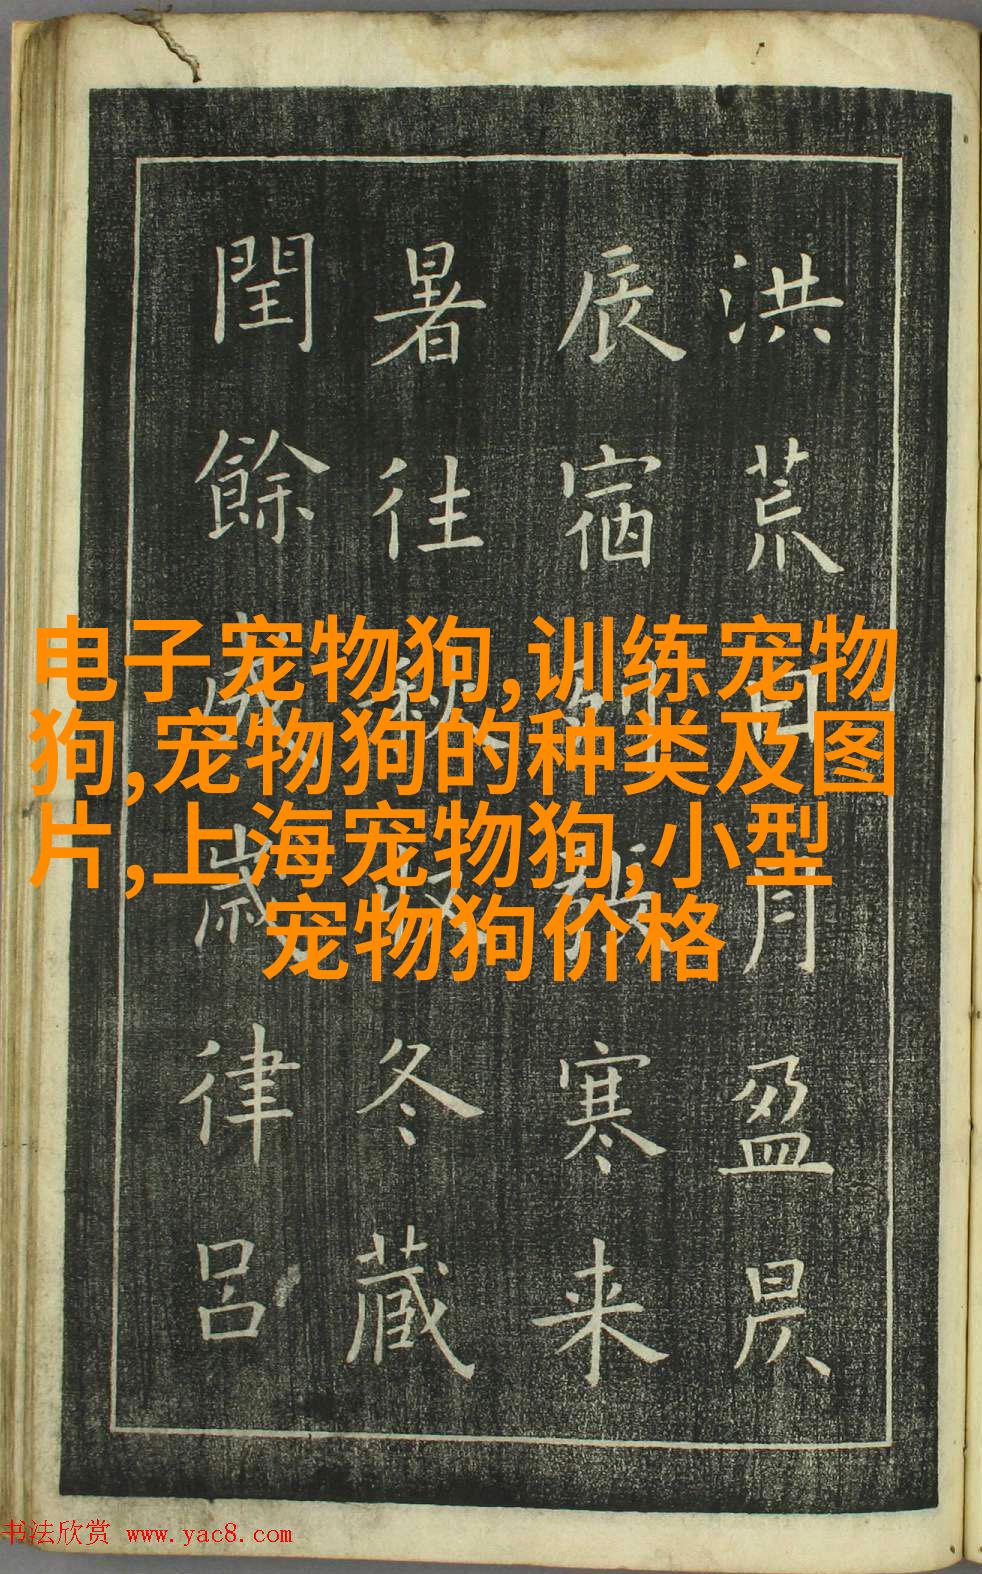 洪荒日月盈昃
辰宿列張寒来
暑往秋冬蔵
閏餘歳律呂
电子宠物狗,训练宠物
狗,宠物狗的种类及图
片,上海宠物狗,小型
宠物狗价格
书法欣赏 www.yac8.com